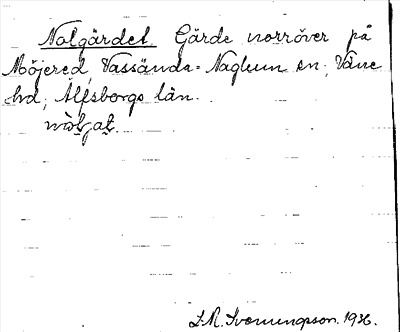 Nolgärdet. Gärde norröver på
Möjered, Vassända-Naglum sn, Väne
hd, Älfsborgs län.
S.A. Svenungsson. 1936.